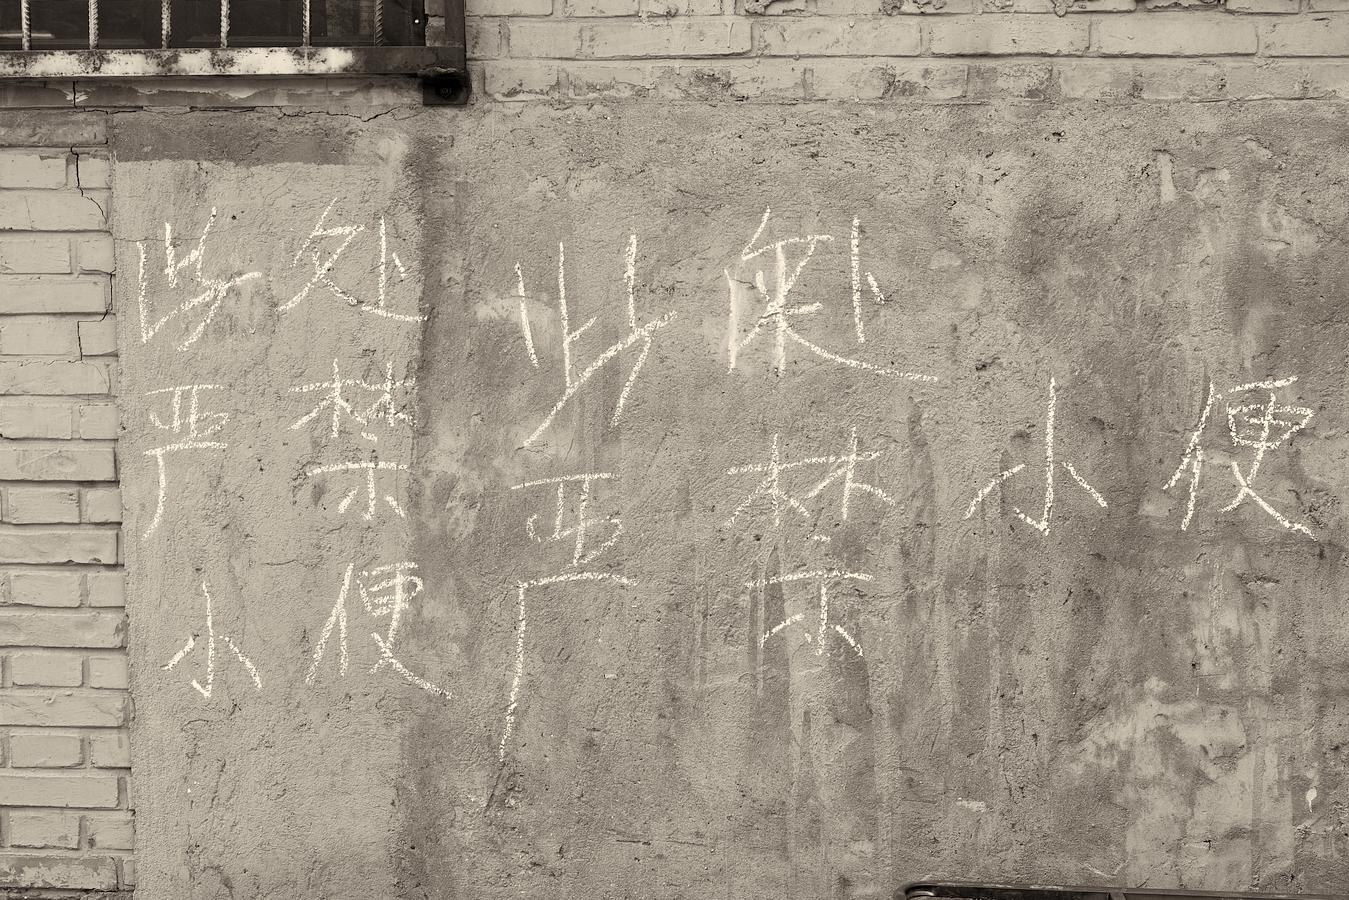 此处
严禁
小便
此处
严禁
小便